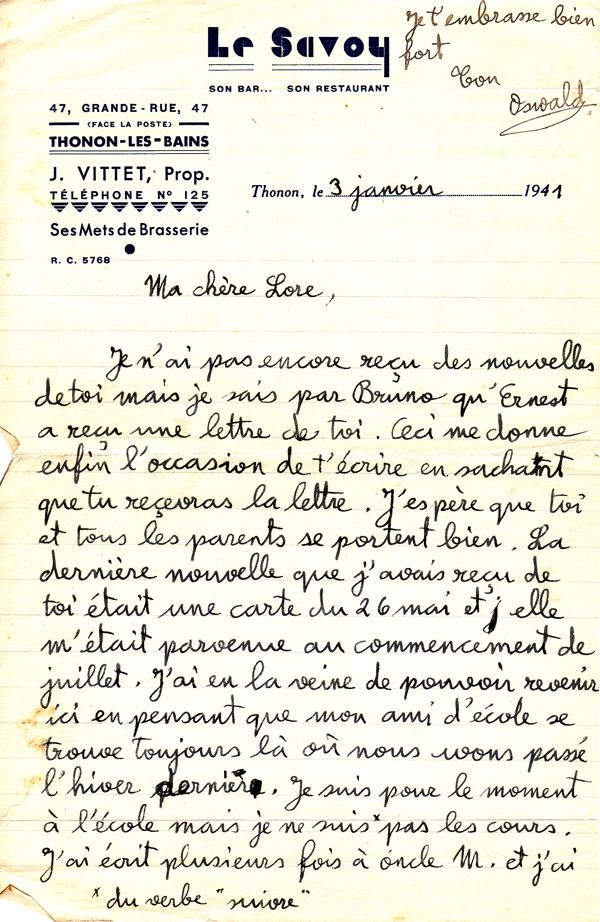 Je t'embrasse bien
fort
Ton
Oswald.
Le Savoy
SON BAR... SON RESTAURANT
47, GRANDE-RUE, 47
(FACE LA POSTE)
THONON-LES-BAINS
J. VITTET, Prop.
TÉLÉPHONE Nº 125
Ses Mets de Brasserie
R. C. 5768
Thonon, le 3 janvier 1941
Ma chère Lore,
Je n'ai pas encore reçu des nouvelles
de toi mais je sais par Bruno qu'Ernest
a reçu une lettre de toi. Ceci me donne
enfin l'occasion de t'écrire en sachant
que tu reçevras la lettre. J'espère que toi
et tous les parents se portent bien. La
dernière nouvelle que j'avais reçu de
toi était une carte du 26 mai et elle
m'était parvenue au commencement de
juillet. J'ai eu la veine de pouvoir revenir
ici en pensant que mon ami d'école se
trouve toujours là où nous avons passé
l'hiver dernière. Je suis pour le moment
à l'école mais je ne suis* pas les cours.
J'ai écrit plusieurs fois à oncle M. et j'ai
* du verbe "suivre"